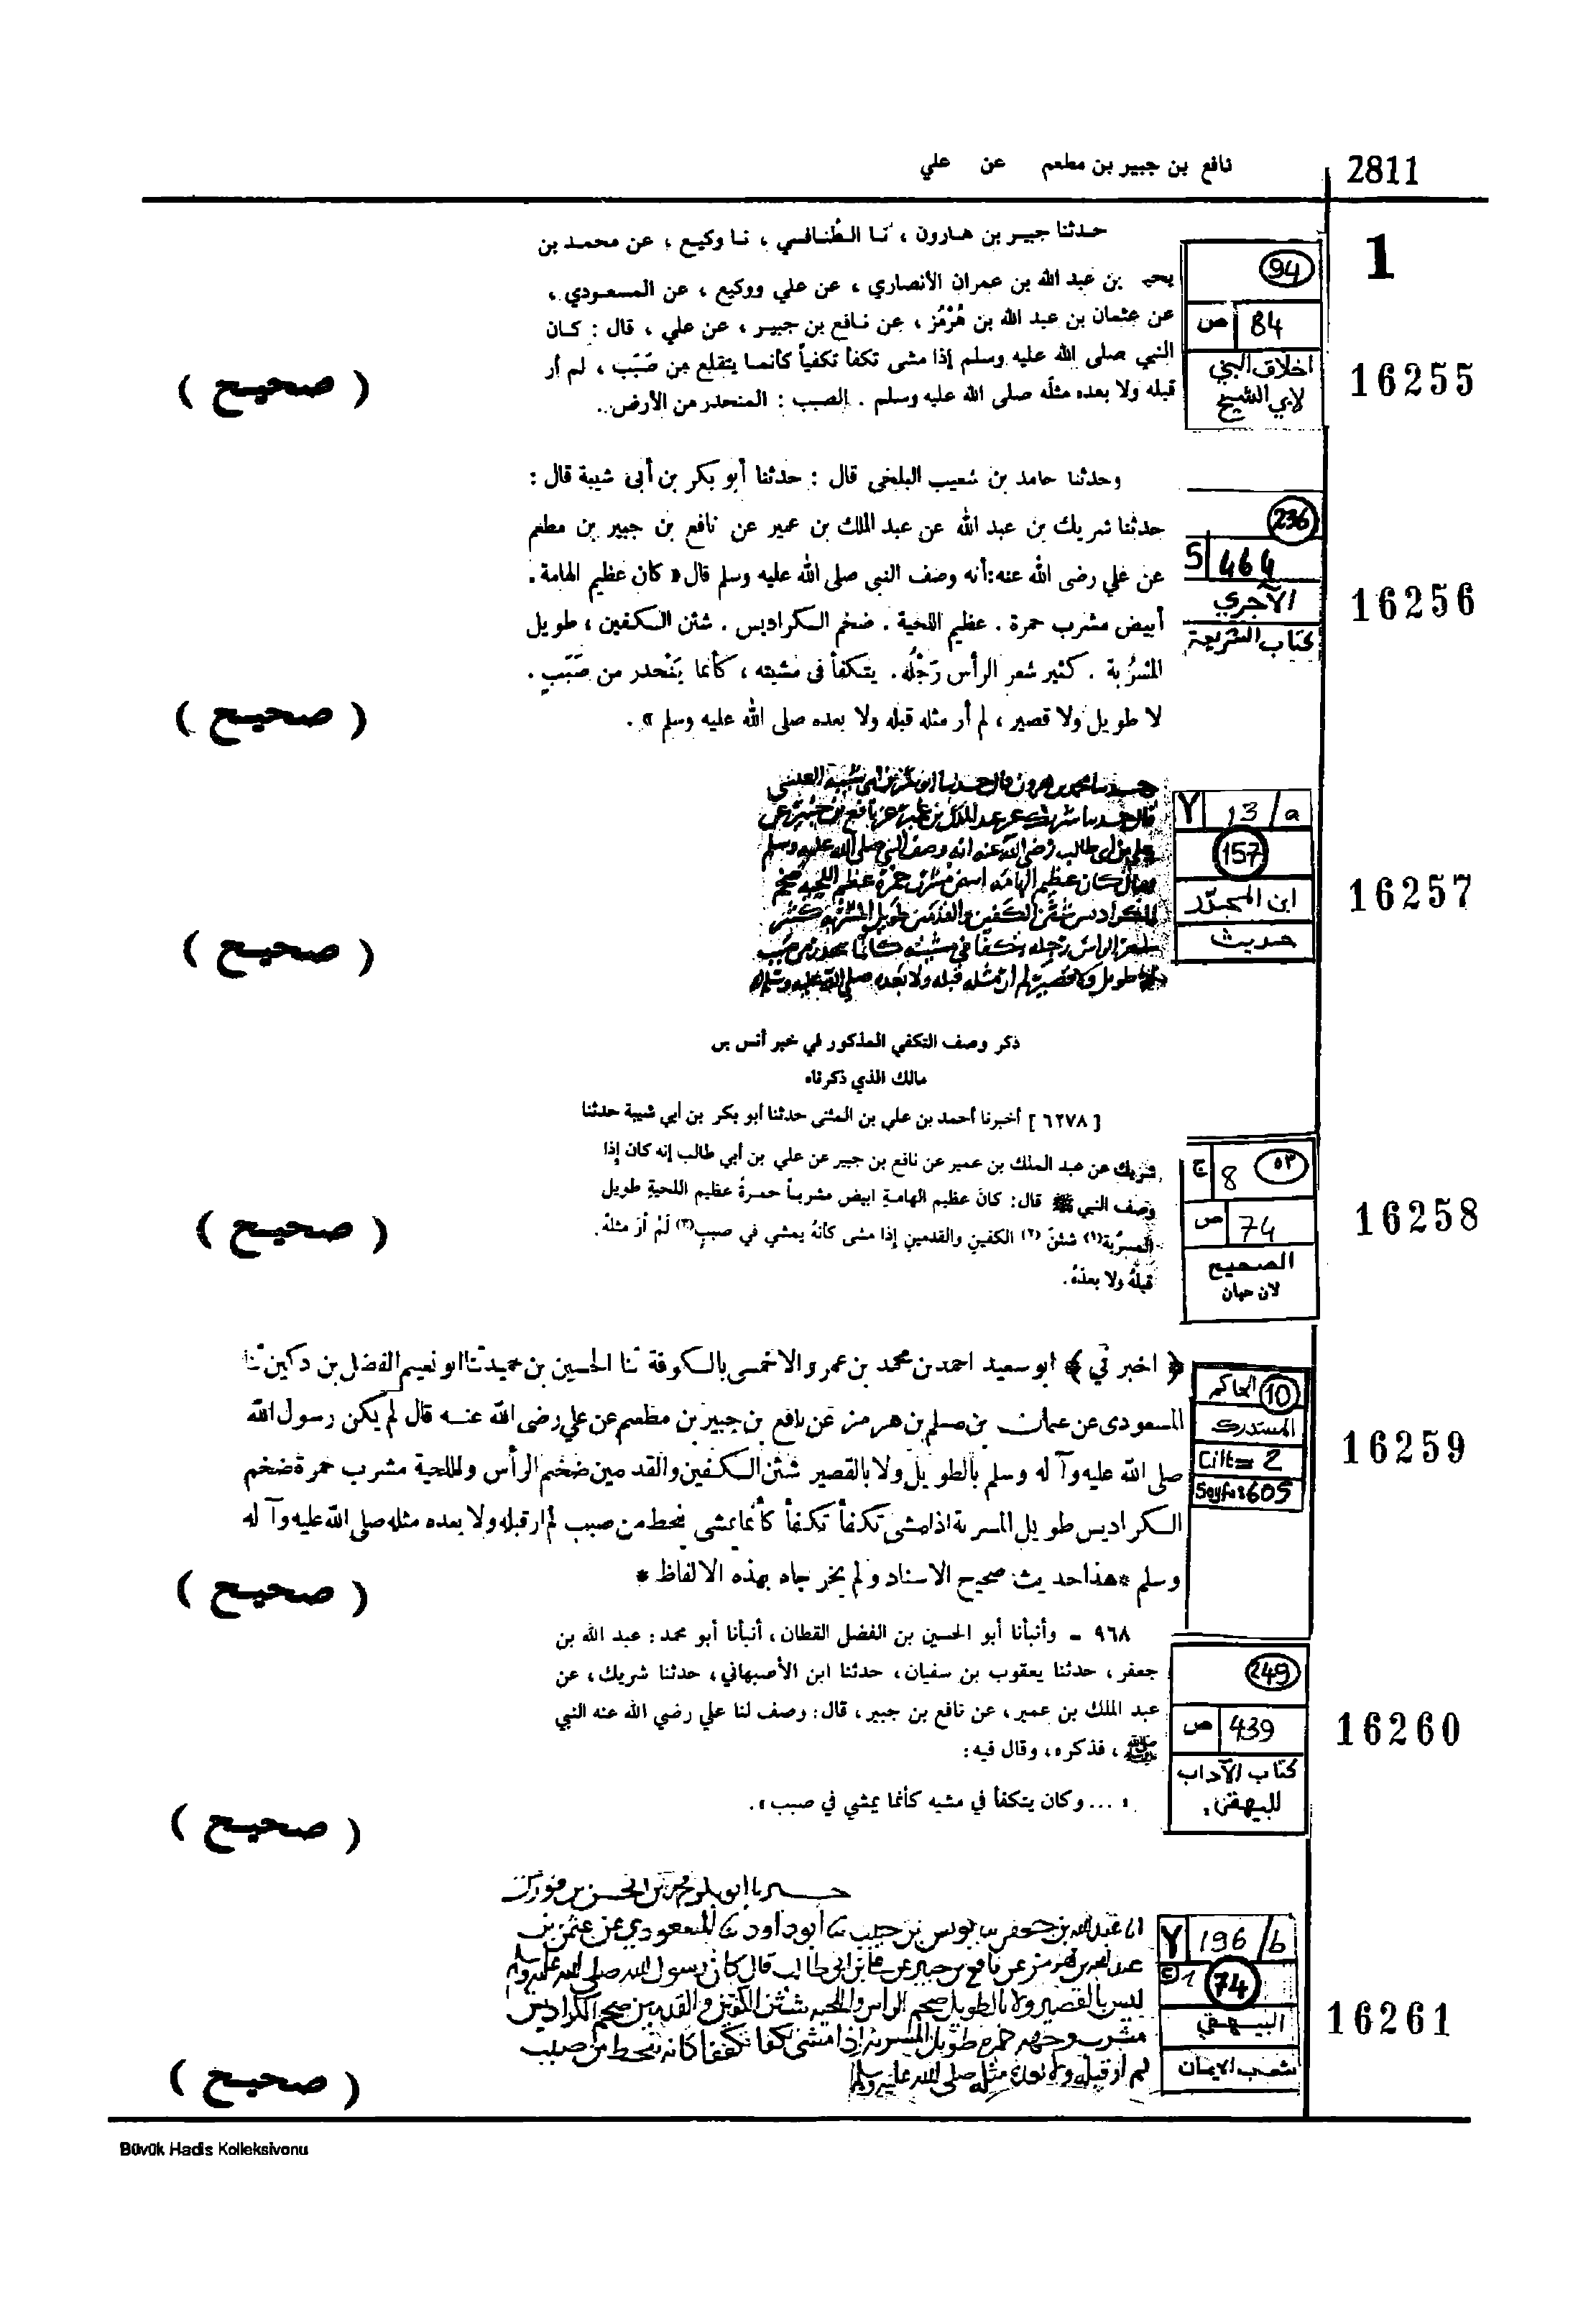 نافع بن جبير بن مطعم عن علي
2811
1
حدثنا جبير بن هارون ، نا الطنافسي ، نا وكيع ، عن محمد بن
يحيى بن عبد الله بن عمران الأنصاري ، عن علي ووكيع ، عن المسعودي ،
عن عثمان بن عبد الله بن هُرْمُز ، عن نافع بن جبير ، عن علي ، قال : كان
النبي صلى الله عليه وسلم إذا مشى تكفأ تكفياً كأنما يتقلع من صَبَب ، لم أر
قبله ولا بعده مثله صلى الله عليه وسلم . الصبب : المنحدر من الأرض .
94
ص 84
اخلاق النبي
لابي الشيخ
16255
( صحيح )
وحدثنا حامد بن شعيب البلخى قال : حدثنا أبو بكر بن أبى شيبة قال :
حدثنا شريك بن عبد الله عن عبد الملك بن عمير عن نافع بن جبير بن مطعم
عن على رضى الله عنه : أنه وصف النبى صلى الله عليه وسلم قال « كان عظيم الهامة .
أبيض مشرب حمرة . عظيم اللحية . ضخم الكراديس . شثن الكفين ، طويل
المسْرُبة . كثير شعر الرأس رَجْلُه . يتكفأ فى مشيته ، كأنما يَنْحدر من صَبَبٍ .
لا طويل ولا قصير ، لم أر مثله قبله ولا بعده صلى الله عليه وسلم » .
236
S 464
الآجري
كتاب الشريعة
16256
( صحيح )
قال حدثنا شريك عن عبد الملك بن عمير عن نافع بن جبير عن
علي بن ابي طالب رضي الله عنه انه وصف النبي صلى الله عليه وسلم
فقال كان عظيم الهامه ابيض مشرب حمرة عظيم اللحيه ضخم
الكراديس شثن الكفين والقدمين طويل المسربه كثير
شعر الراس رجله يتكفا في مشيته كانما ينحدر من صبب
لا طويل ولا قصير لم ار مثله قبله ولا بعده صلى الله عليه وسلم
Y 13/a
157
حديث
16257
( صحيح )
ذكر وصف التكفي المذكور في خبر أنس بن
مالك الذي ذكرناه
[ ٦٢٧٨ ] أخبرنا أحمد بن علي بن المثنى حدثنا أبو بكر بن أبي شيبة حدثنا
شريك عن عبد الملك بن عمير عن نافع بن جبير عن علي بن أبي طالب إنه كان إذا
وصف النبي ﷺ قال: كانَ عظيم الهامةِ ابيض مشرباً حمرةً عظيم اللحيةِ طويل
المسرُبة(١) شثنَ (٢) الكفينِ والقدمينِ إذا مشى كأنهُ يمشي في صببٍ(٣) لَمْ أرَ مثلهُ
قبلَهُ ولا بعدَهُ.
٥٣
ج 8
ص 74
الصحيح
لابن حبان
16258
( صحيح )
﴿ اخبرني ﴾ ابو سعيد احمد بن محمد بن عمرو الاخمسى بالكوفة ثنا الحسين بن حميد ثنا ابو نعيم الفضل بن دكين ثنا
المسعودى عن عثمان بن مسلم بن هرمز عن نافع بن جبير بن مطعم عن علي رضى الله عنه قال لم يكن رسول الله
صلى الله عليه وآله وسلم بالطويل ولا بالقصير شثن الكفين والقدمين ضخم الرأس واللحية مشرب حمرة ضخم
الكراديس طويل المسربة اذا مشى تكفأ تكفأ كأنما يمشى ينحط من صبب لم ار قبله ولا بعده مثله صلى الله عليه وآله
وسلم * هذا حديث صحيح الاسناد ولم يخرجاه بهذه الالفاظ *
10 الحاكم
المستدرك
Cilt= 2
Sayfa: 605
16259
( صحيح )
٩٦٨ - وأنبأنا أبو الحسين بن الفضل القطان، أنبأنا أبو محمد: عبد الله بن
جعفر، حدثنا يعقوب بن سفيان، حدثنا ابن الأصبهاني، حدثنا شريك، عن
عبد الملك بن عمير، عن نافع بن جبير، قال: وصف لنا علي رضي الله عنه النبي
ﷺ، فذكره، وقال فيه:
« ... وكان يتكفأ في مشيه كأنما يمشي في صبب».
249
ص 439
كتاب الآداب
للبيهقي
16260
( صحيح )
حدثنا ابو بكر محمد بن الحسن بن فورك
انا عبد الله بن جعفر نا يونس بن حبيب نا أبو داود نا المسعودي عن عثمن بن
عبد الله بن هرمز عن نافع بن جبير عن علي بن ابي طالب قال كان رسول الله صلى الله عليه وسلم
ليس بالقصير ولا بالطويل ضخم الراس واللحيه شثن الكفين والقدمين ضخم الكراديس
مشرب وجهه حمره طويل المسربة إذا مشى تكفا تكفيا كانما ينحط من صبب
لم ار قبله ولا بعده مثله صلى الله عليه وسلم
Y 196/b
1 74
البيهقي
شعب الايمان
16261
( صحيح )
Büyük Hadis Kolleksiyonu